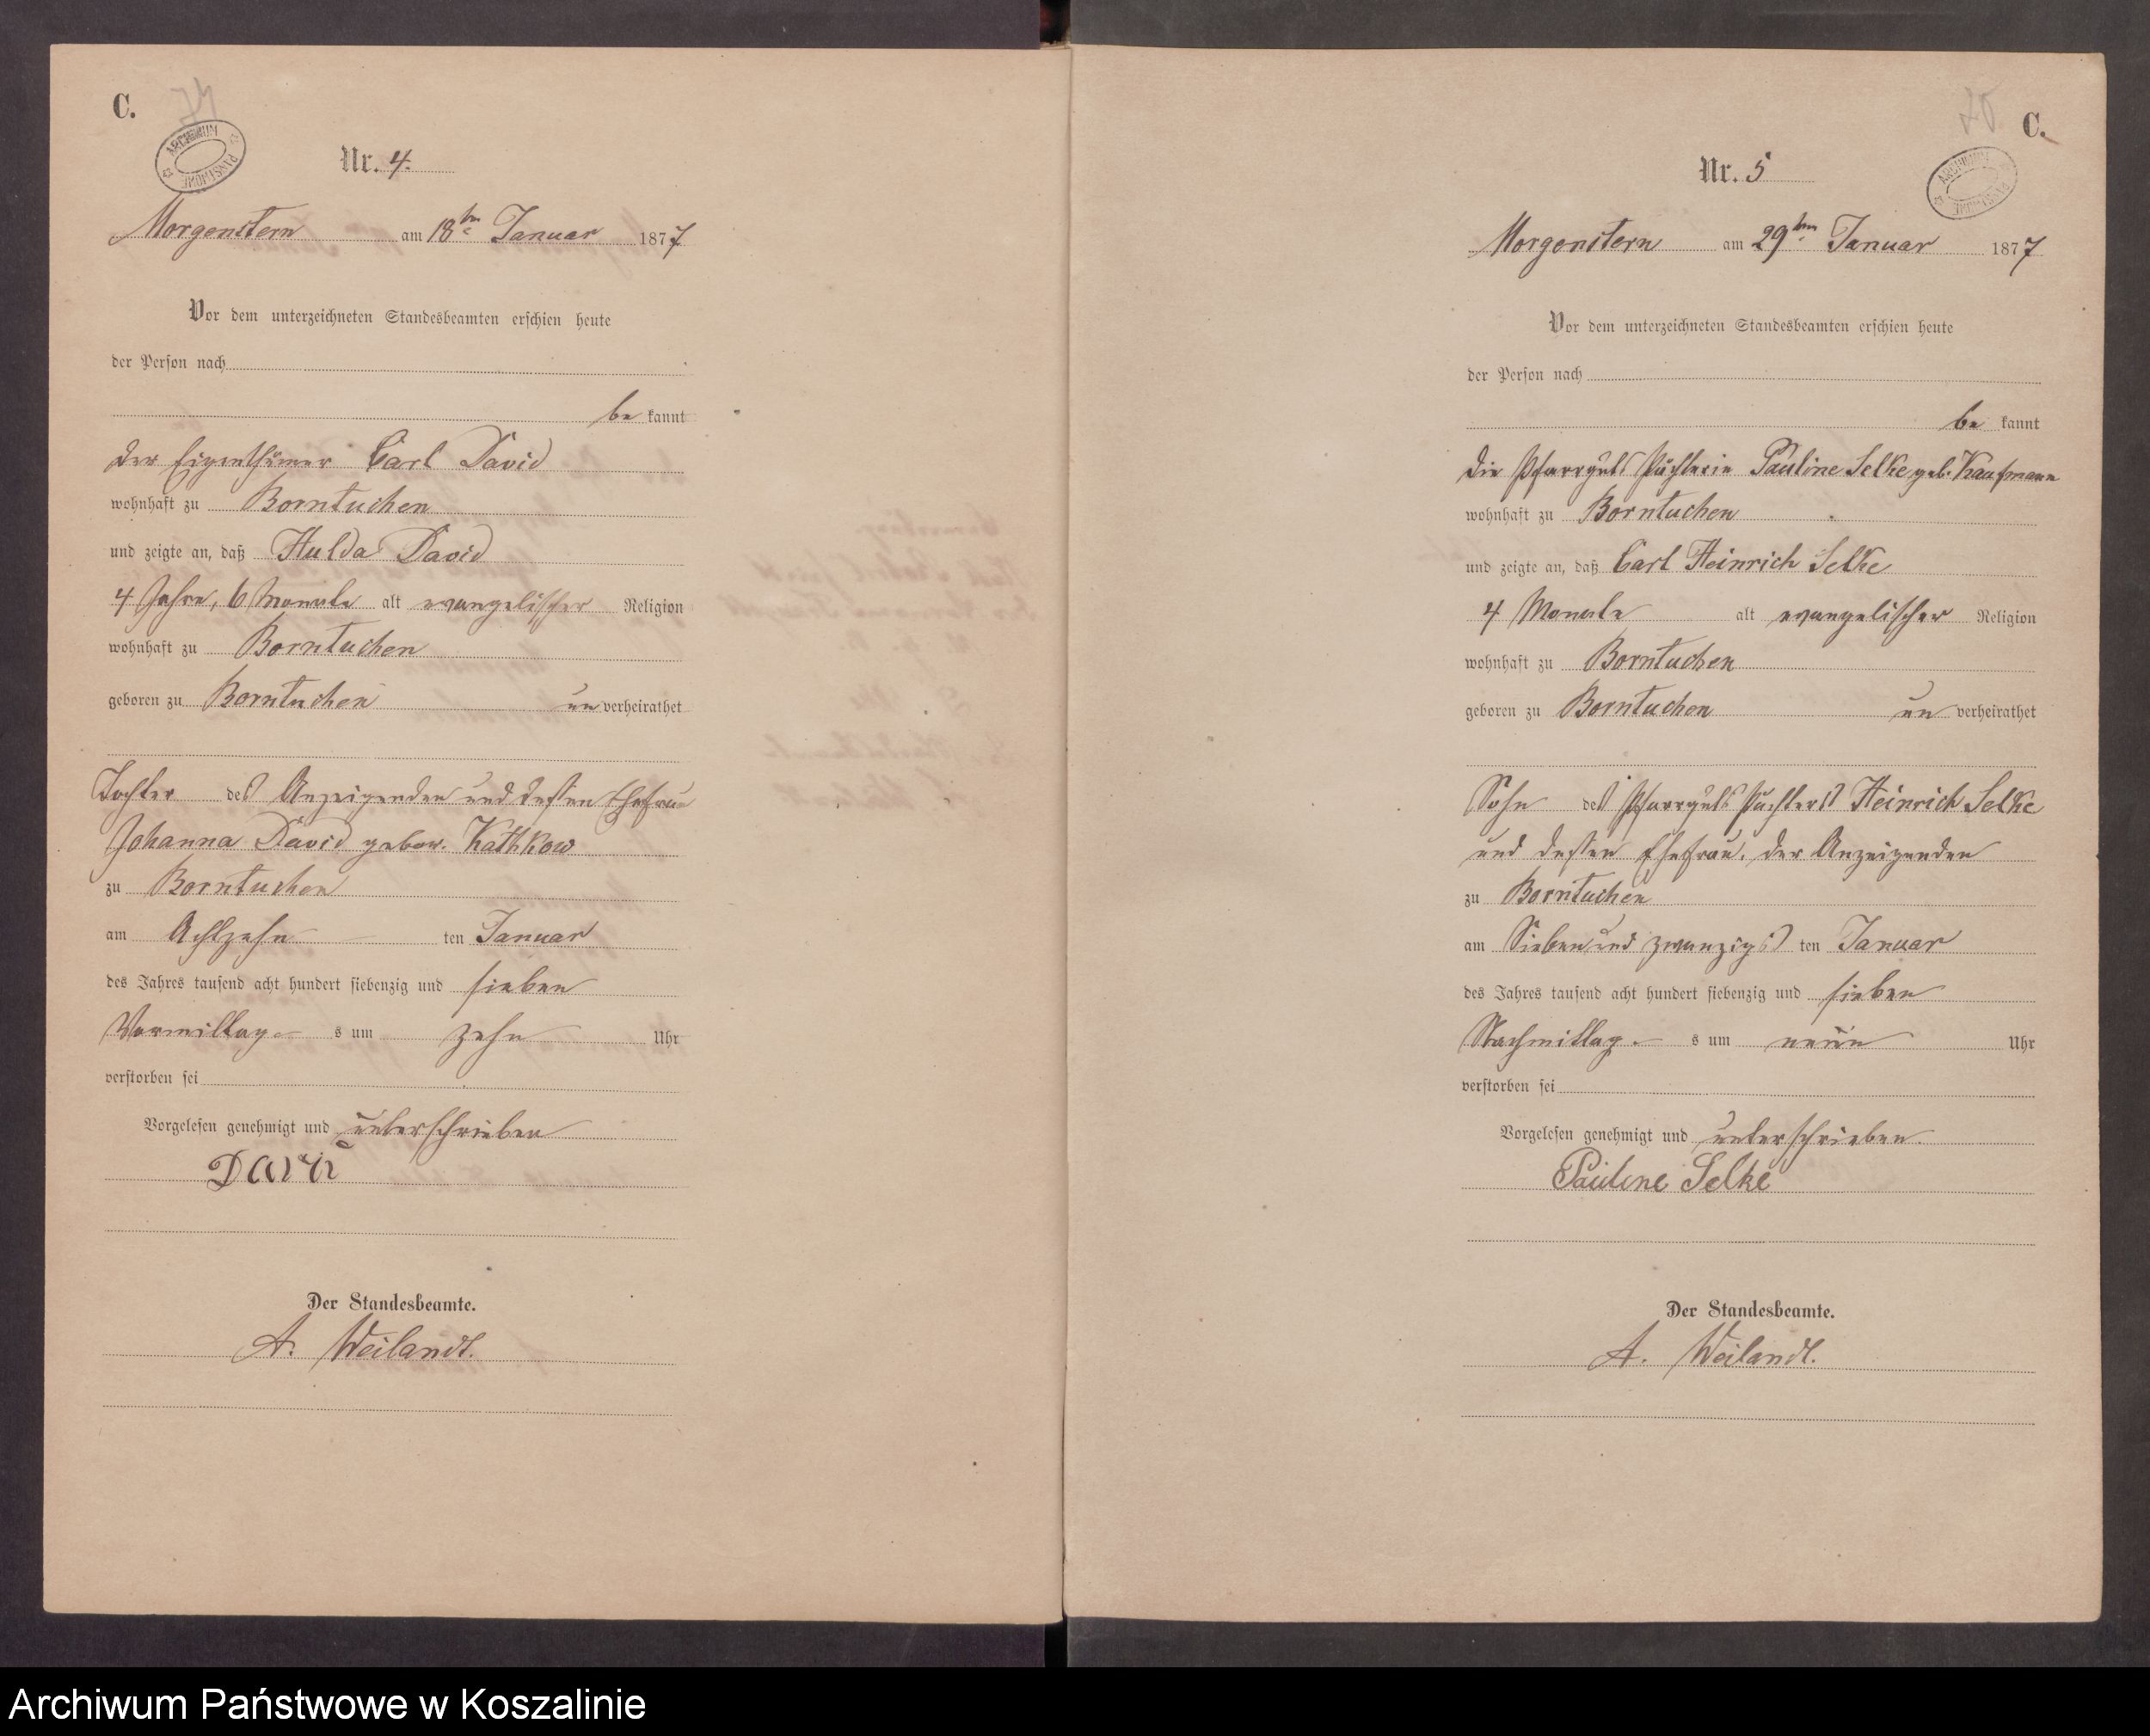 C.
ARCHIWUM PAŃSTWOWE
Nr. 4.
Morgenstern am 18ten Januar 1877
Vor dem unterzeichneten Standesbeamten erschien heute
der Person nach
be kannt
der Eigenthümer Carl David
wohnhaft zu Borntuchen
und zeigte an, daß Hulda David
4 Jahre, 6 Monate alt evangelischer Religion
wohnhaft zu Borntuchen
geboren zu Borntuchen un verheirathet
Tochter des Anzeigenden und dessen Ehefrau
Johanna David gebor. Kathkow
zu Borntuchen
am Achtzehn ten Januar
des Jahres tausend acht hundert siebenzig und sieben
Vormittag s um zehn Uhr
verstorben sei
Vorgelesen genehmigt und unterschrieben
David
Der Standesbeamte.
A. Weilandt.
C.
ARCHIWUM PAŃSTWOWE
Nr. 5
Morgenstern am 29ten Januar 1877
Vor dem unterzeichneten Standesbeamten erschien heute
der Person nach
be kannt
die Pfarrguts Pächterin Pauline Selke geb. Kaufmann
wohnhaft zu Borntuchen
und zeigte an, daß Carl Heinrich Selke
4 Monate alt evangelischer Religion
wohnhaft zu Borntuchen
geboren zu Borntuchen un verheirathet
Sohn des Pfarrguts Pächters Heinrich Selke
und dessen Ehefrau, der Anzeigenden
zu Borntuchen
am Sieben und zwanzigs ten Januar
des Jahres tausend acht hundert siebenzig und sieben
Nachmittag s um neun Uhr
verstorben sei
Vorgelesen genehmigt und unterschrieben.
Pauline Selke
Der Standesbeamte.
A. Weilandt.
Archiwum Państwowe w Koszalinie